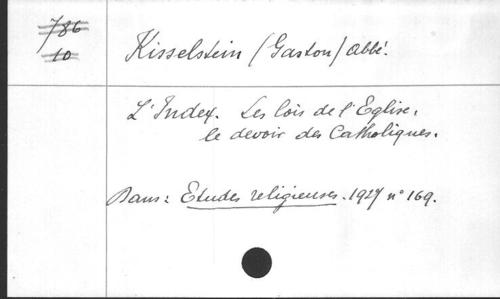 786
10
Kisselstein (Gaston) Abbé.
L'Index. Les lois de l'Eglise,
le devoir des Catholiques.
Dans: Etudes religieuses. 1927 n° 169.